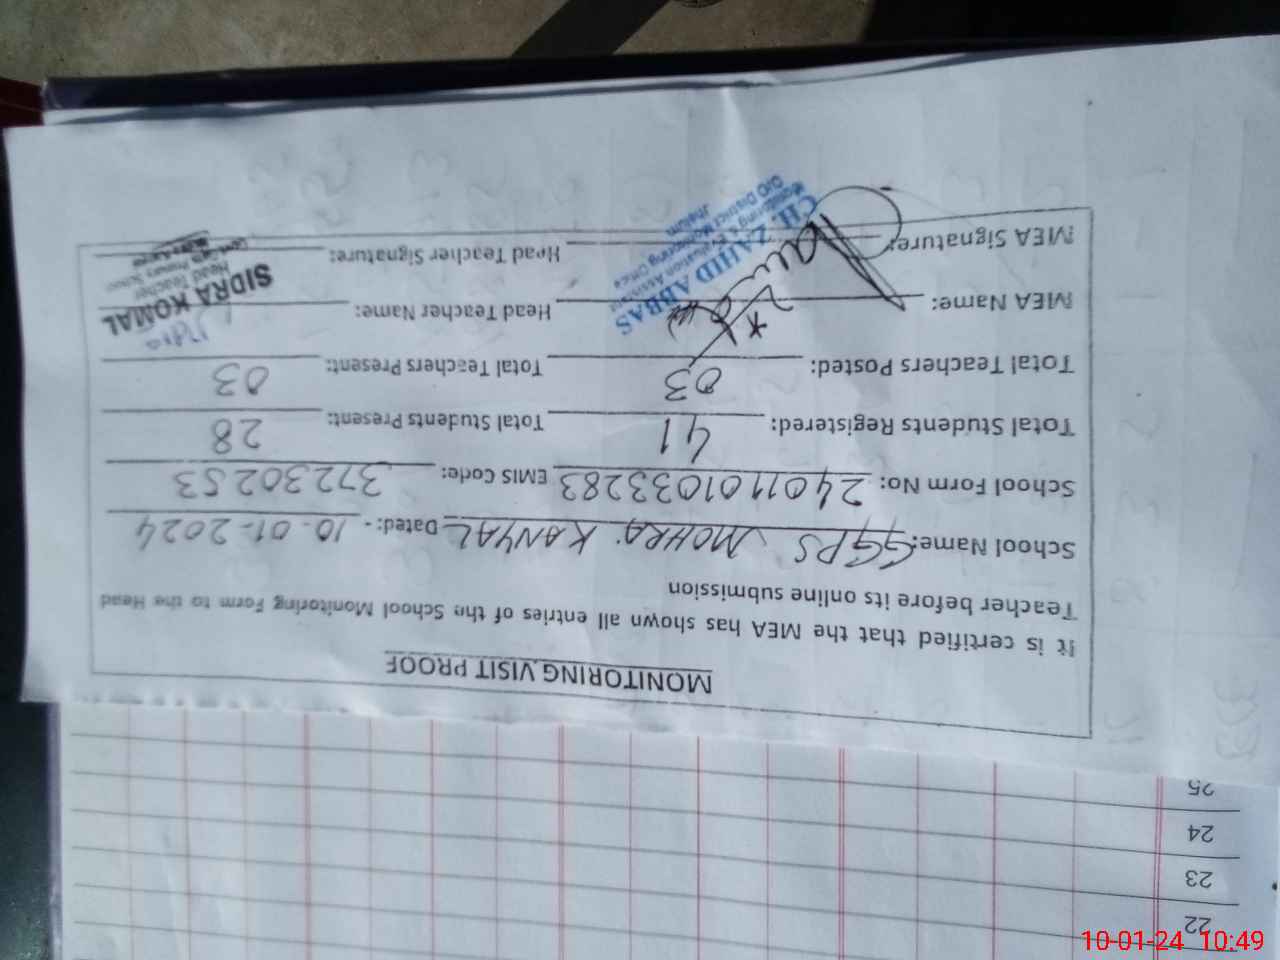 MONITORING VISIT PROOF
It is certified that the MEA has shown all entries of the School Monitoring Form to the Head
Teacher before its online submission
School Name: GGPS MOHRA KANYAL Dated: - 10-01-2024
School Form No: 2401101033283 EMIS Code: 37230253
Total Students Registered: 41 Total Students Present: 28
Total Teachers Posted: 03 Total Teachers Present: 03
MEA Name: Head Teacher Name:
MEA Signature: Head Teacher Signature:
CH. ZAHID ABBAS
Monitoring & Evaluation Assistant
O/O District Monitoring Office
Jhelum
SIDRA KOMAL
Head Teacher
Primary School
25
24
23
22
10-01-24 10:49